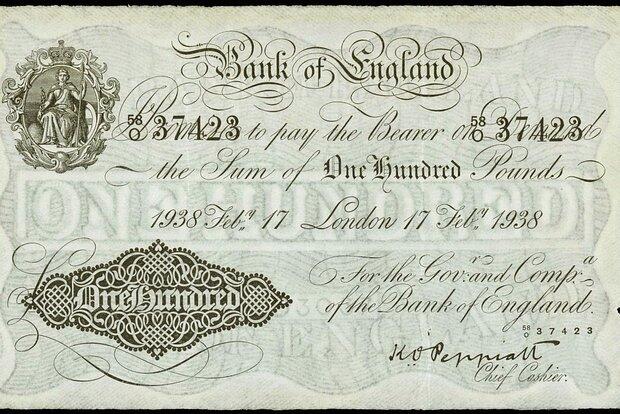 Bank of England
58/O 37423 to pay the Bearer on 58/O 37423
the Sum of One Hundred Pounds
1938 Feb.ʸ 17 London 17 Feb.ʸ 1938
For the Gov.ʳ and Comp.ᵃ
of the Bank of England.
One Hundred
58/O 37423
K.O. Peppiatt
Chief Cashier.